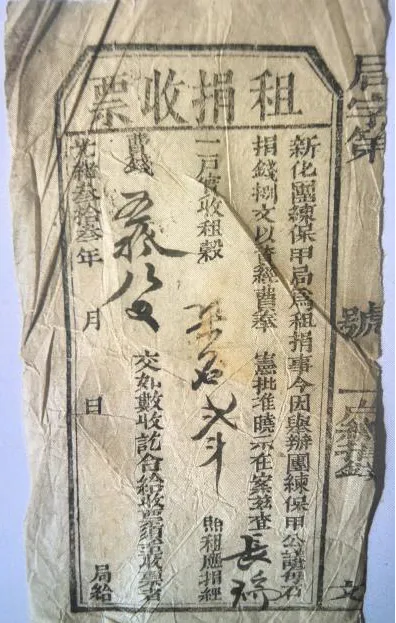 租捐收票
局字第 號 一戶給捐錢 文
新化團練保甲局爲租捐事今因興辦團練保甲公議每石
捐錢捌文以資經費奉 憲批准曉示在案茲查 長瑞
一戶實收租穀 斗 照租應捐經
費錢 文 交如數收訖合給收票須至收票者
光緒叁拾叁年 月 日 局給